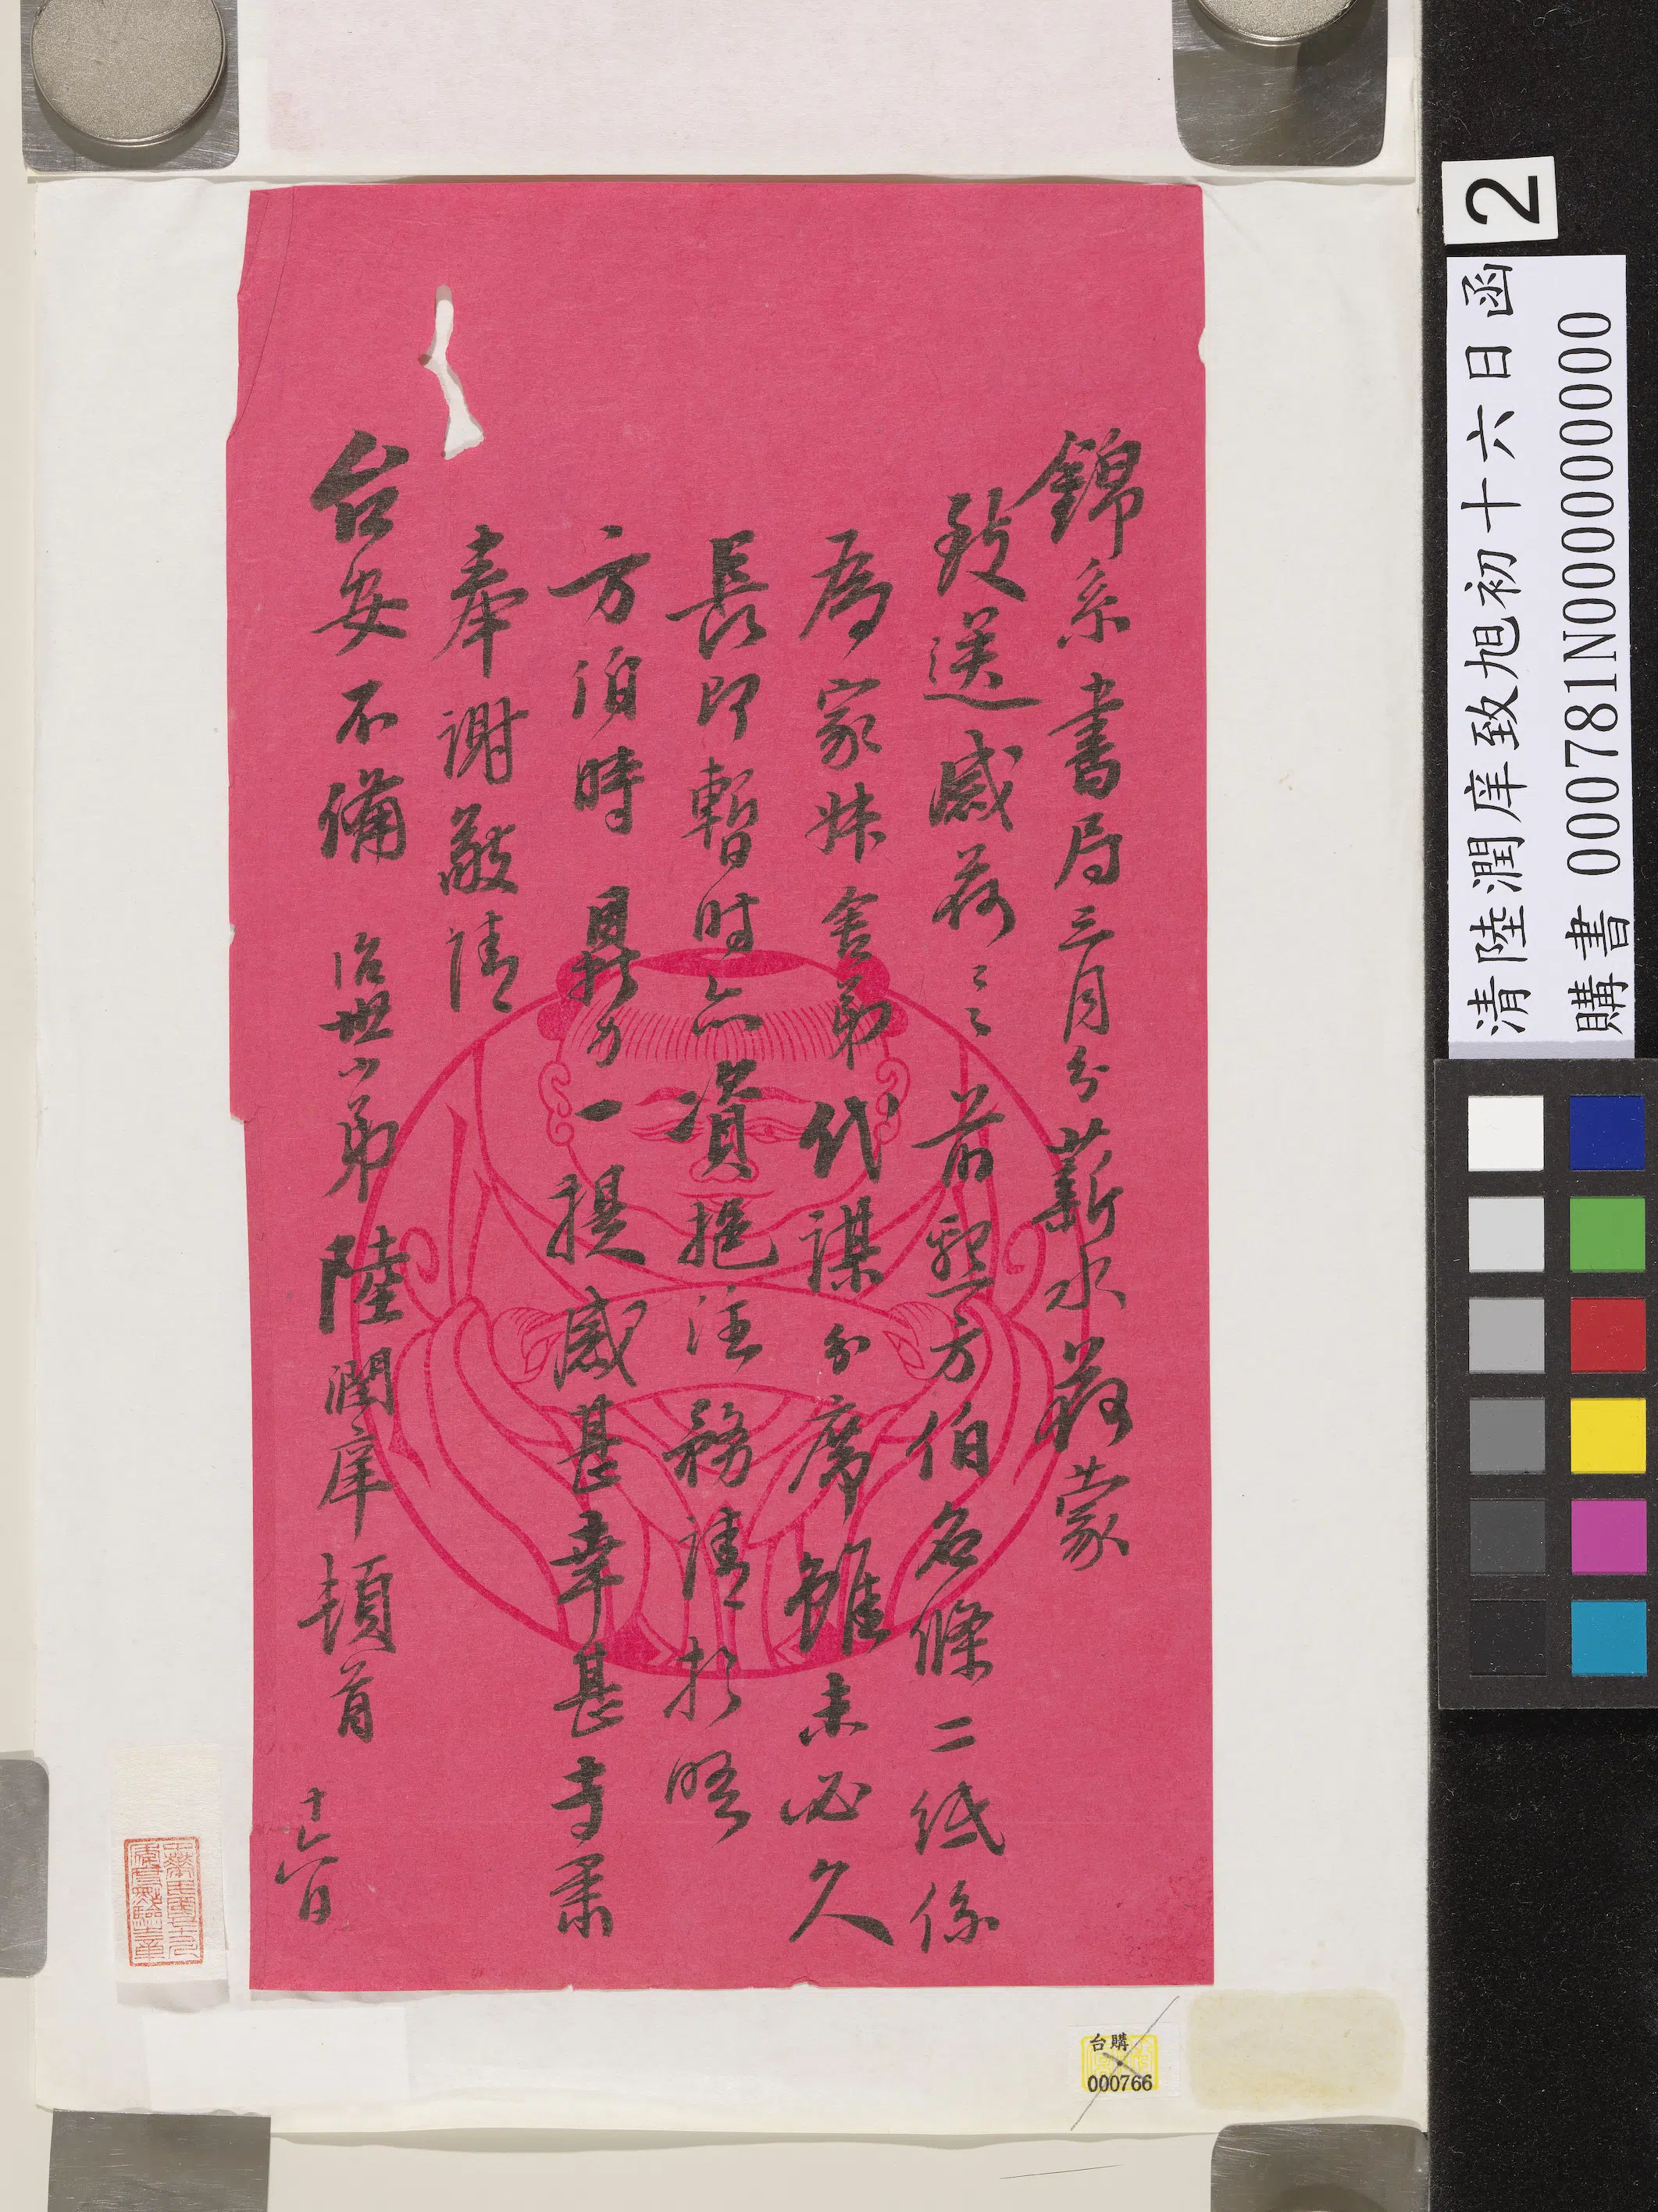 錦系書局三月分薪水荷蒙
致送感荷〻〻前懇方伯名條二紙係
為家妹舍弟代謀分席雖未必久
長即暫時亦資挹注務請於晤
方伯時鼎力一提感甚幸甚專肅
奉謝敬請
台安不備 治世小弟陸潤庠頓首
十六日
2
清陸潤庠致旭初十六日函
購書 000781N000000000
台購
000766